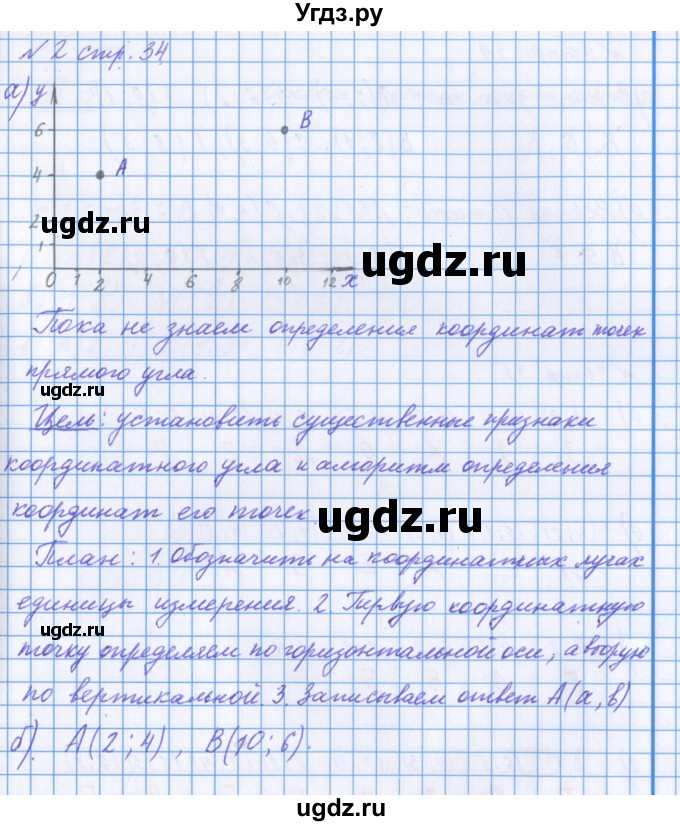 Угдз.ру
№ 2 стр. 34
а) y
6
B
4
A
ugdz.ru
2
ugdz.ru
1
0 1 2 4 6 8 10 12 x
Пока не знаем определения координат точек
прямого угла.
ugdz.ru
Цель: установить существенные признаки
координатного угла и алгоритм определения
координат его точек.
ugdz.ru
План: 1. Обозначить на координатных лучах
единицы измерения. 2. Первую координатную
ugdz.ru
точку определяем по горизонтальной оси, а вторую
по вертикальной. 3. Записываем ответ A(a, b)
б). A(2; 4), B(10; 6).
ugdz.ru